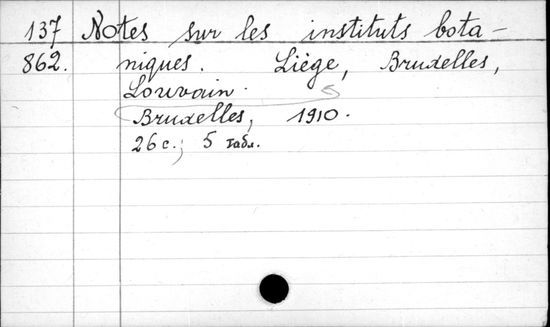 137 Notes sur les instituts bota-
862. niques. Liége, Bruxelles,
Louvain.
Bruxelles, 1910.
26 с.; 5 табл.